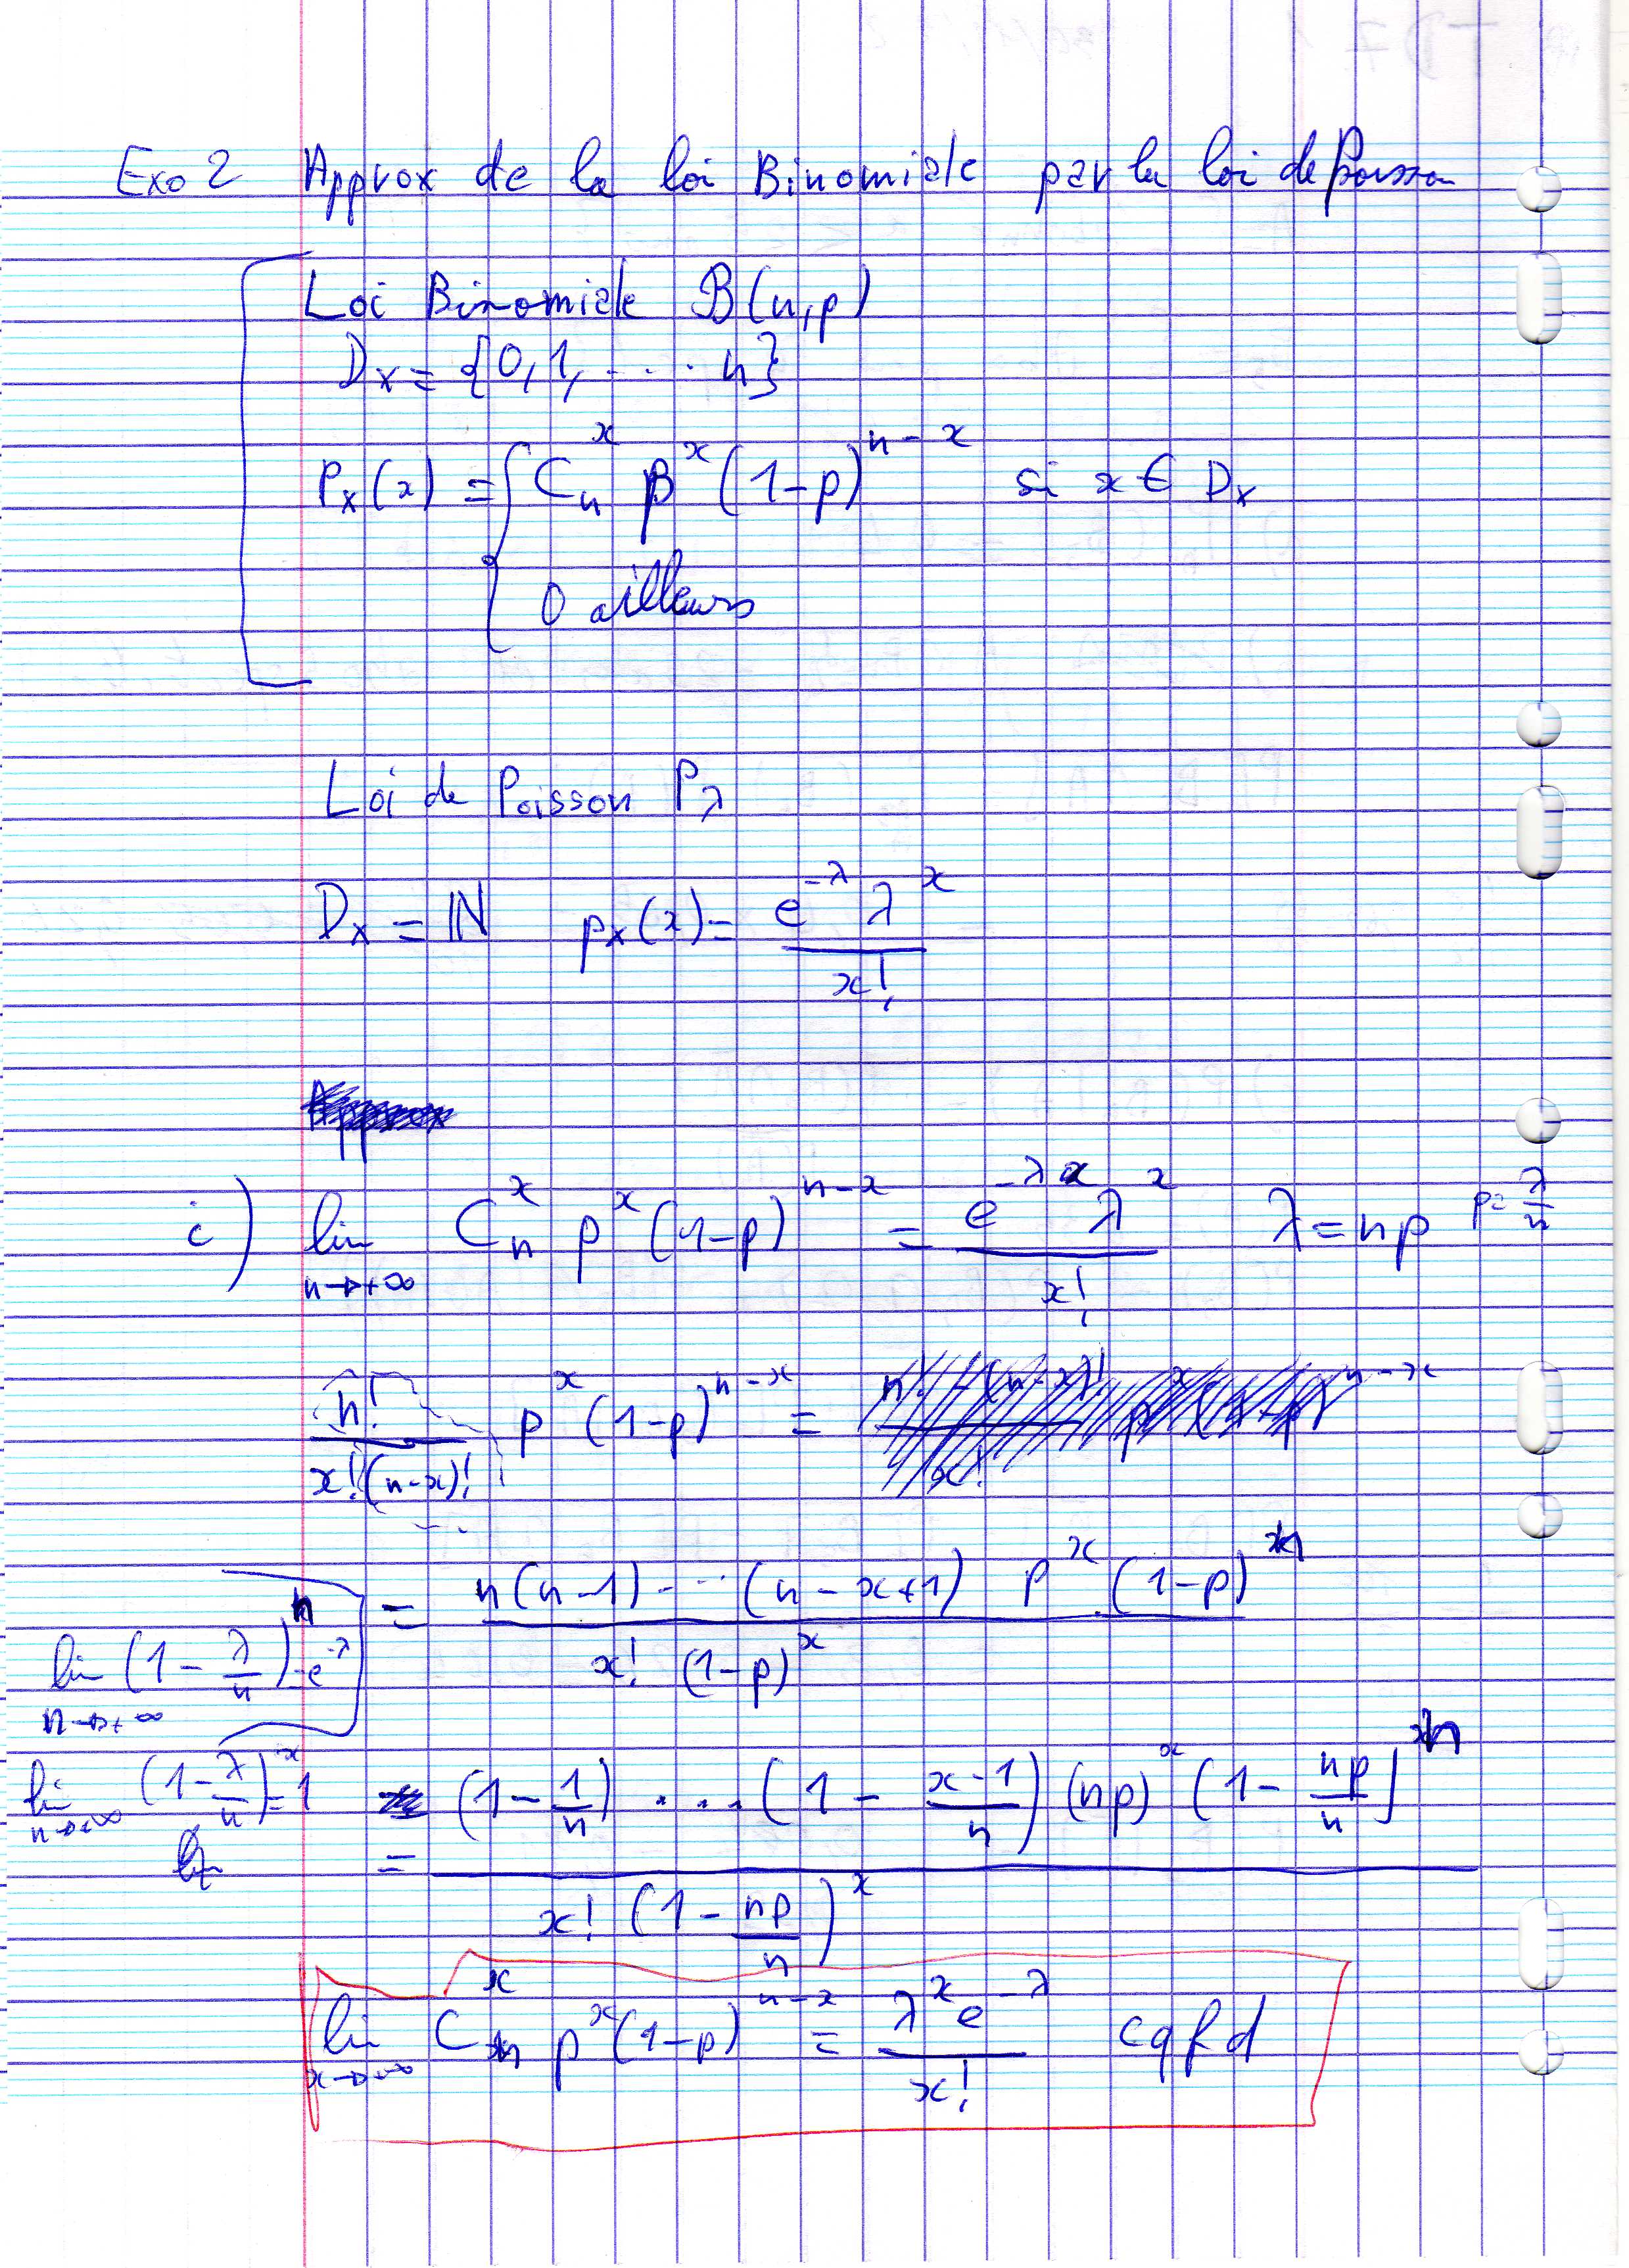 Exo 2 Approx de la loi Binomiale par la loi de Poisson
Loi Binomiale B(n,p)
Dx = {0, 1, .... n}
Px(x) = { Cₙˣ pˣ (1-p)ⁿ⁻ˣ si x ∈ Dx
0 ailleurs
Loi de Poisson Pλ
Dx = ℕ px(x) = e^-λ λ^x / x!
i) lim n→+∞ Cₙˣ pˣ (1-p)ⁿ⁻ˣ = e^-λ λ^x / x! λ = np p = λ/n
n! / x!(n-x)! pˣ (1-p)ⁿ⁻ˣ =
= n(n-1)....(n-x+1) pˣ (1-p)ⁿ / x! (1-p)ˣ
lim n→+∞ (1 - λ/n)ⁿ = e^-λ
lim n→+∞ (1 - λ/n)⁻ˣ = 1
= (1 - 1/n) .... (1 - (x-1)/n) (np)ˣ (1 - np/n)ⁿ / x! (1 - np/n)ˣ
lim x→+∞ Cₙˣ pˣ (1-p)ⁿ⁻ˣ = λˣ e^-λ / x! cqfd